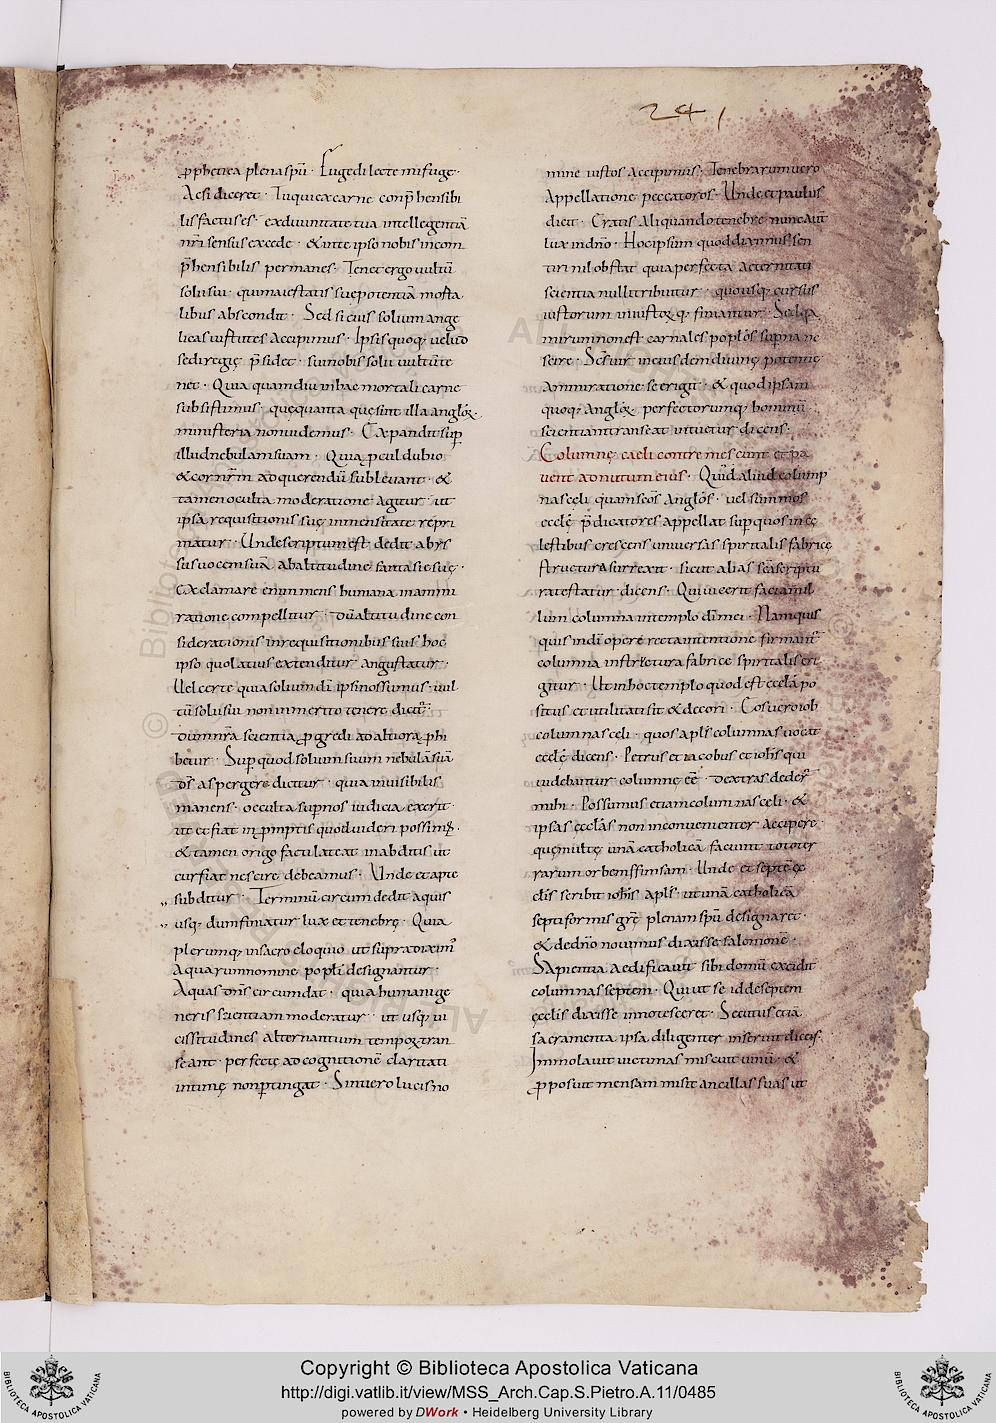 241
ꝓphetica plena spū · Fuge dilecte mi fuge ·
Ac si diceret · Tu qui ex carne conp̄hensibi
lis factus es · ex divinitate tua intellegentiā
nr̄i sensus excede · & in te ipso nobis incom
p̄hensibilis permanes · Tenet ergo vultū
solii sui · qui maiestatis suę potentiā mo&#115;ta
libus abscondit · Sed si eius solium ange
licas virtutes accipimus · Ipsis quoq; velud
sedi regię p̄sidet · sui nobis solii vultū te
net · Quia quamdiu in hac mortali carne
subsistimus · quę quanta quę sint illa angłoꝝ
ministeria non videmus · Expandit sup̄
illud nebulam suam · Quia ꝓcul dubio
& cor nr̄m ad querendū sublevant · &
tamen occulta moderatione agitur ut
ipsa requisitionis suę inmensitate repri
matur · Unde scriptum est dedit abys
sus vocem suā ab altitudine fantasię suę ·
Exclamare enim mens humana in ammi
ratione compellitur · dū altitudine con
siderationis in requisitionibus suis hoc
ipso quo latius extenditur angustatur ·
Vel certe quia solium dī ipsi nos sumus · vul
tū solii sui non inmerito tenere dicit̄
dum nr̄a scientia ꝓgredi ad altiora ꝓhi
betur · Sup̄ quod solium suum nebulā suā
dō̄s aspergere dicitur · quia invisibilis
manens · occulta sup̄ nos iudicia exerit ·
ut et fiat in ꝓmptis quod videri possim; ·
& tamen origo facti lateat in abditis ut
cur fiat nescire debeamus · Unde et apte
,, subditur · Terminū circumdedit aquis
,, usq; dum finiatur lux et tenebrę · Quia
plerumq; in sacro eloquio ut supra diximꝰ
aquarum nomine popli designantur ·
Aquas dn̄s circumdat · quia humani ge
neris scientiam moderatur · ut usq; vi
cissitudines alternantium tempoꝝ tran
seant · perfecte ad cognitionē claritati
intimę non ꝑtingat · Sin vero lucis no
mine iustos accipimus · Tenebrarum vero
Appellatione peccatores · Unde et paulus
dicit · Eratis aliquando tenebre nunc aut̄
lux in dn̄o · Hoc ipsum quod diximus sen
tiri nil obstat quia perfecta aeternitati
scientia nulli tribuitur · quousq; cursus
iustorum iniustoꝝq; finiantur · Sed qa
mirum non est carnales poplos superna ne
scire · Sc̄s vir in eiusdem divinę potentię
ammiratione se erigit · & quod ipsam
quoq; angłoꝝ perfectorumq; hominū
scientiam transeat intuetur dicens ·
Columnę caeli contremescunt et pa
vent ad nutum eius · Quid aliud colump
nas cęli quam scōs angłos · vel summos
ecclę̄ p̄dicatores appellat sup̄ quos in cę
lestibus crescens universa spiritalis fabricę
structura surrexit · sicut alias scā scriptu
ra testatur dicens · Qui vicerit faciam il
lum columna in templo dī mei · Nam quis
quis in dī opere recta intentione firmat̄
columna in structura fabricę spiritalis eri
gitur · Ut in hoc templo quod est ecclā po
situs et utilitati sit & decori · Eos vero iob
columnas cęli · quos apls columnas vocat
ecclę̄ dicens · Petrus et iacobus et iohs qui
videbantur columnę eē · dextras deder̄
mihi · Possumus etiam columnas cęli · &
ipsas ęcclās non inconvenienter accipere
quę multę unā catholicā faciunt toto ter
rarum orbe diffusam · Unde et septē ęc
clīs scribit iohs apls · ut unā catholicā
septiformis grę̄ plenam spū designaret ·
& de dn̄o novimus dixisse salomonē ·
Sapientia aedificavit sibi domū excidit
columnas septem · Qui ut se id de septem
ęcclīs dixisse innotesceret · Secutus etiā
sacramenta ipsa diligenter inseruit dicens
Immolavit victimas miscuit vinū · &
ꝓposuit mensam misit ancillas suas ut
Copyright © Biblioteca Apostolica Vaticana
http://digi.vatlib.it/view/MSS_Arch.Cap.S.Pietro.A.11/0485
powered by DWork • Heidelberg University Library
BIBLIOTECA APOSTOLICA VATICANA
BIBLIOTECA APOSTOLICA VATICANA